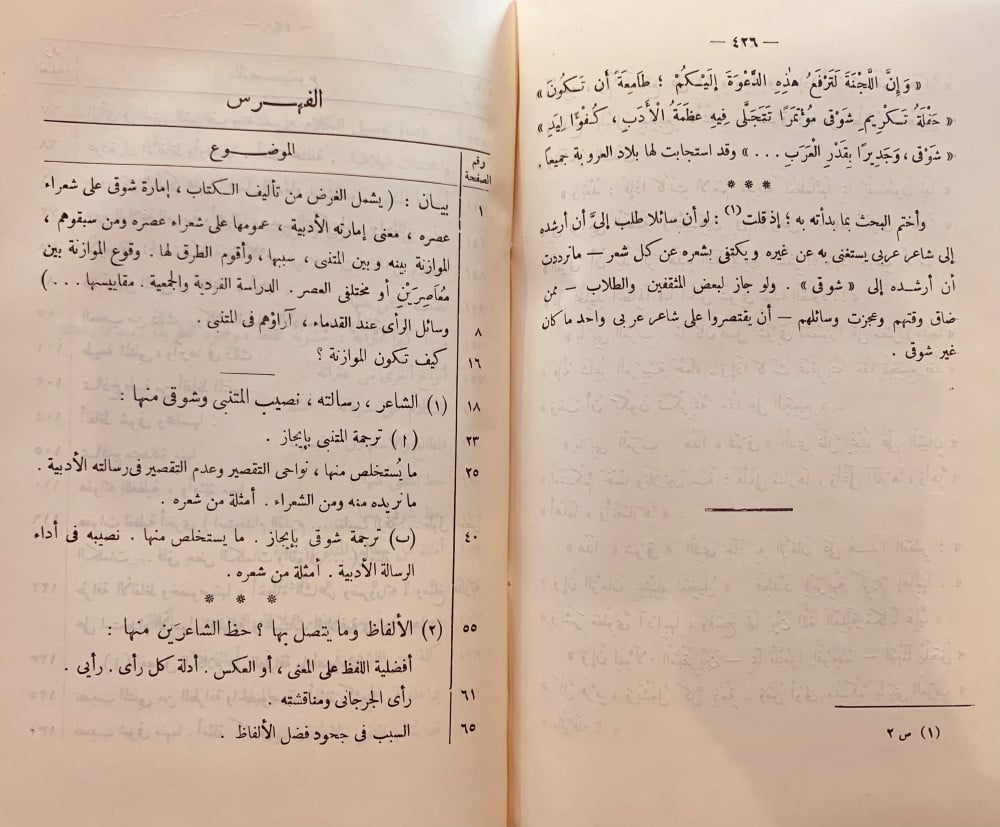 — ٤٣٦ —
« وَإِنَّ اللَّجْنَةَ لَتَرْفَعُ هٰذِهِ الدَّعْوَةَ إِلَيْكُمْ ؛ طَامِعَةً أَن تَكُونَ »
« حَفْلَةُ تَكْرِيمِ شَوْقِى مُؤْتَمَرًا تَتَجَلَّى فِيهِ عَظَمَةُ الْأَدَبِ ، كُفُؤًا لِيَدِ »
« شَوْقِى ، وَجَدِيرًا بِقَدْرِ الْعَرَبِ ... » وقد استجابت لها بلاد العروبة جميعاً .
* * *
وأختم البحث بما بدأته به ؛ إذ قلت (١) : لو أن سائلا طلب إلىَّ أن أرشده
إلى شاعر عربى يستغنى به عن غيره و يكتفى بشعره عن كل شعر — ماترددت
أن أرشده إلى « شوقى » . ولو جاز لبعض المثقفين والطلاب — ممن
ضاق وقتهم وعجزت وسائلهم — أن يقتصروا على شاعر عربى واحد ما كان
غير شوقى .
(١) ص ٢
الفهرس
رقم الصفحة الموضوع
١ بيـان : ( يشمل الغرض من تأليف الكتاب ، إمارة شوقى على شعراء
عصره ، معنى إمارته الأدبية ، عمومها على شعراء عصره ومن سبقوهم ،
الموازنة بينه و بين المتنبى ، سببها ، وأقوم الطرق لها . وقوع الموازنة بين
مُعَاصِرَيْنِ أو مختلفى العصر . الدراسة الفردية والجمعية . مقاييسها ... )
٨ وسائل الرأى عند القدماء ، آراؤهم فى المتنبى .
١٦ كيف تكون الموازنة ؟
١٨ (١) الشاعر ، رسالته ، نصيب المتنبى وشوقى منها :
٢٣ (ا) ترجمة المتنبى بإيجاز .
٢٥ ما يُستخلص منها ، نواحى التقصير وعدم التقصير فى رسالته الأدبية .
ما نريده منه ومن الشعراء . أمثلة من شعره .
٤٠ (ب) ترجمة شوقى بإيجاز . ما يستخلص منها . نصيبه فى أداء
الرسالة الأدبية . أمثلة من شعره .
* * *
٥٥ (٢) الألفاظ وما يتصل بها ؟ حظ الشاعرَين منها :
أفضلية اللفظ على المعنى ، أو العكس . أدلة كل رأى . رأيى .
٦١ رأى الجرجانى ومناقشته .
٦٥ السبب فى جحود فضل الألفاظ .